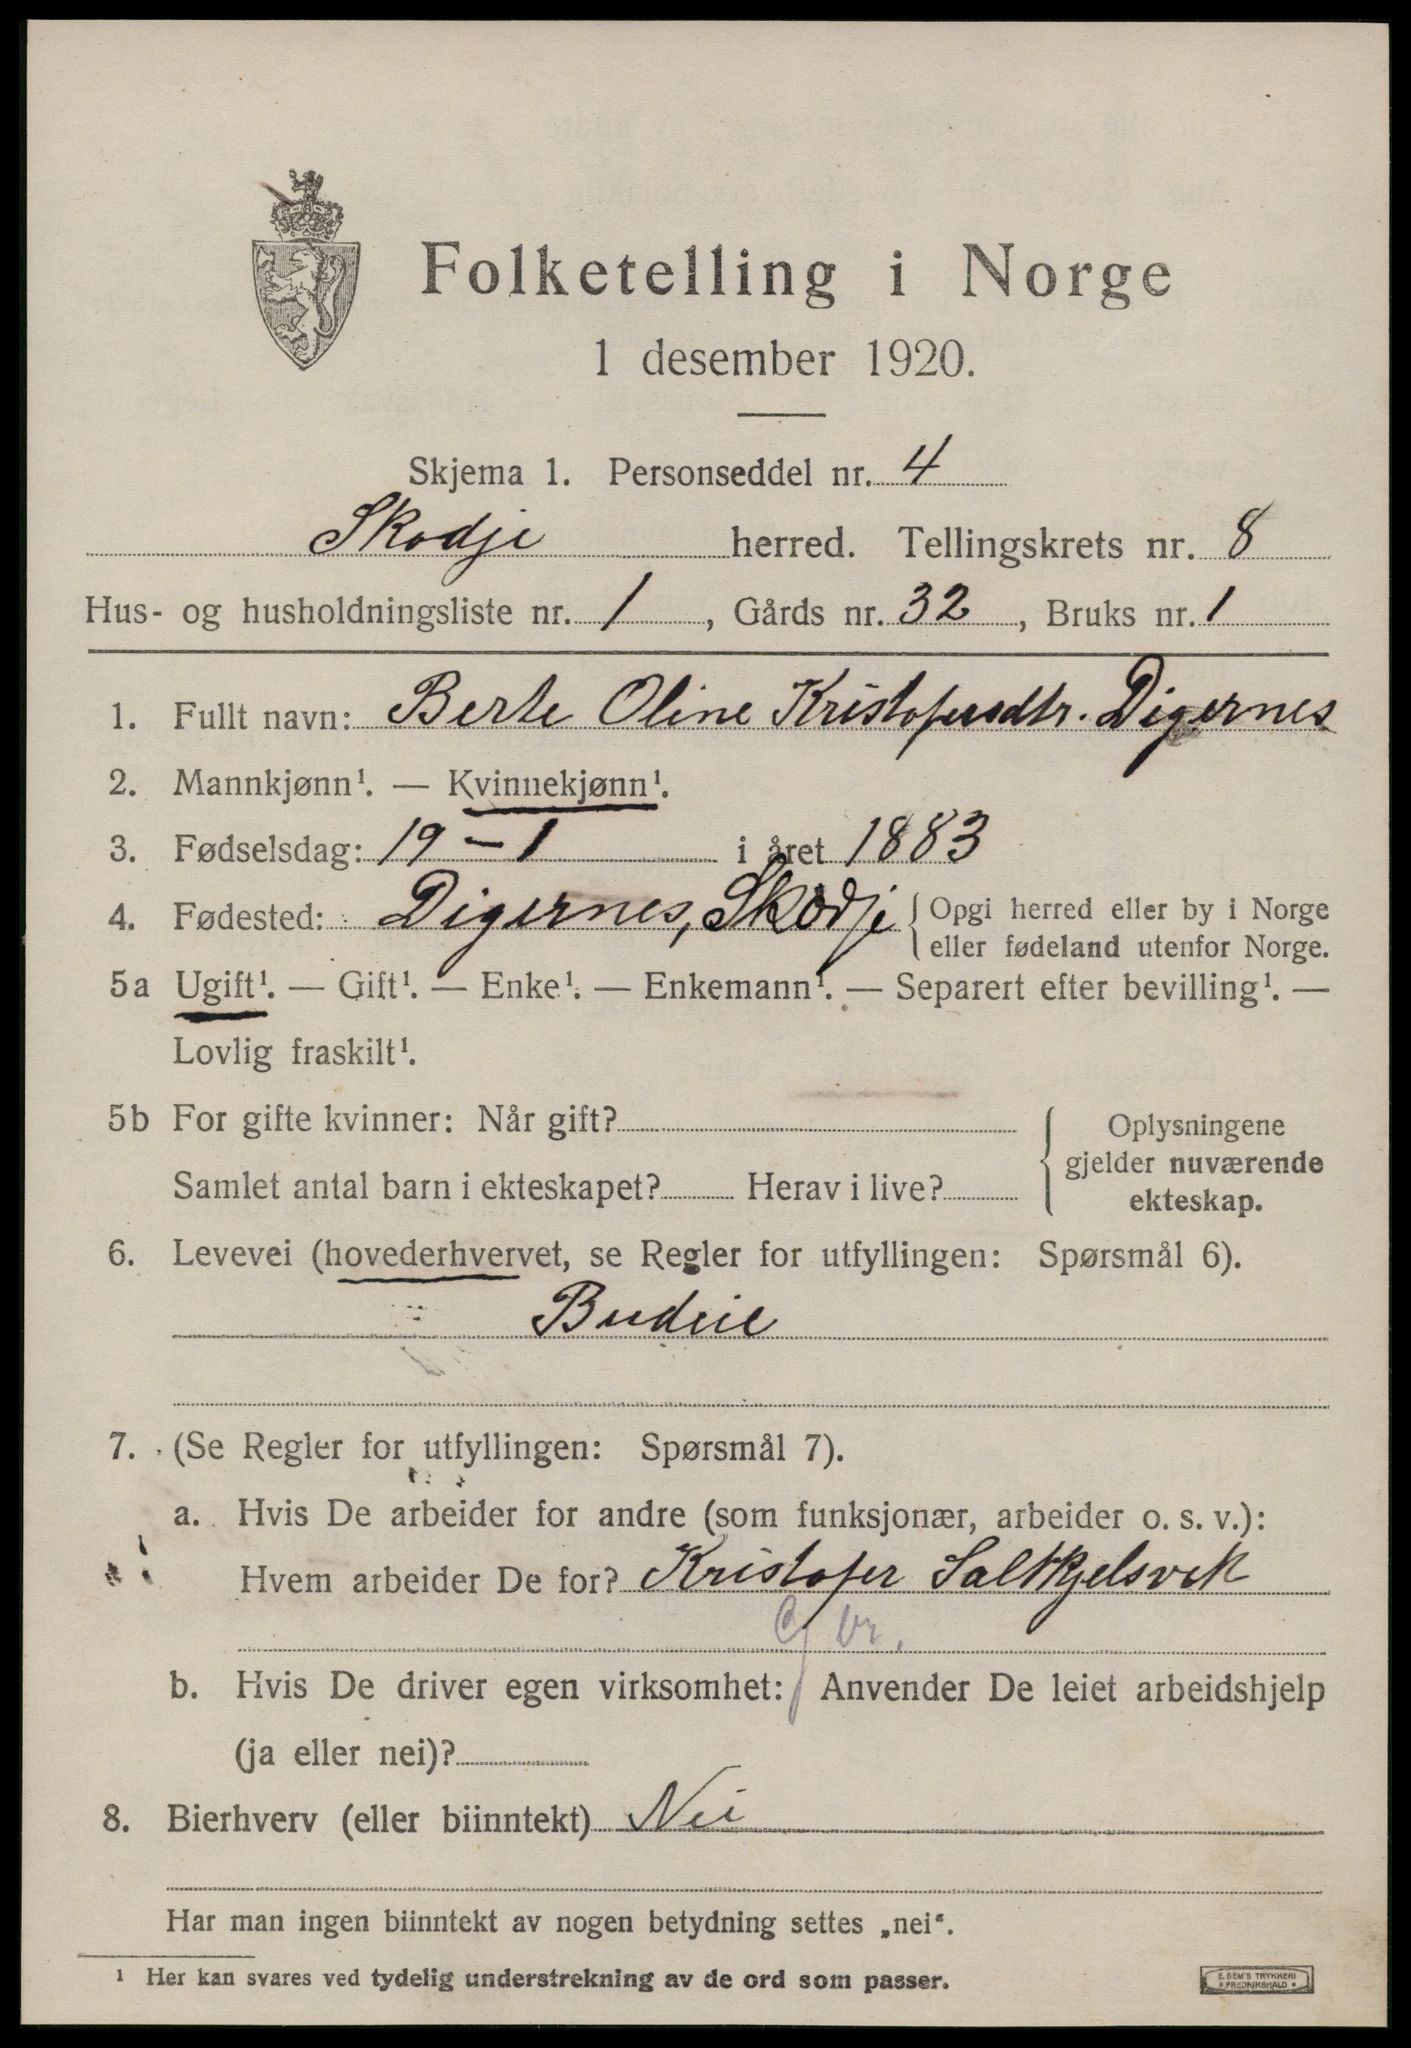 Folketelling i Norge
1 desember 1920.
Skjema 1. Personseddel nr. 4
Skodje herred. Tellingskrets nr. 8
Hus- og husholdningsliste nr. 1, Gårds nr. 32, Bruks nr. 1
1. Fullt navn: Berte Oline Kristofersdtr. Digernes
2. Mannkjønn¹. — Kvinnekjønn¹.
3. Fødselsdag: 19 – 1 i året 1883
4. Fødested: Digernes, Skodje { Opgi herred eller by i Norge
eller fødeland utenfor Norge.
5a Ugift¹. — Gift¹. — Enke¹. — Enkemann¹. — Separert efter bevilling¹. —
Lovlig fraskilt¹.
5b For gifte kvinner: Når gift?
Samlet antal barn i ekteskapet? Herav i live?
Oplysningene
gjelder nuværende
ekteskap.
6. Levevei (hovederhvervet, se Regler for utfyllingen: Spørsmål 6).
Budeie
7. (Se Regler for utfyllingen: Spørsmål 7).
a. Hvis De arbeider for andre (som funksjonær, arbeider o. s. v.):
Hvem arbeider De for? Kristofer Saltkjelsvik
b. Hvis De driver egen virksomhet: Anvender De leiet arbeidshjelp
(ja eller nei)?
8. Bierhverv (eller biinntekt) Nei
Har man ingen biinntekt av nogen betydning settes „nei“.
¹ Her kan svares ved tydelig understrekning av de ord som passer.
E. SEM'S TRYKKERI
* FREDRIKSHALD *